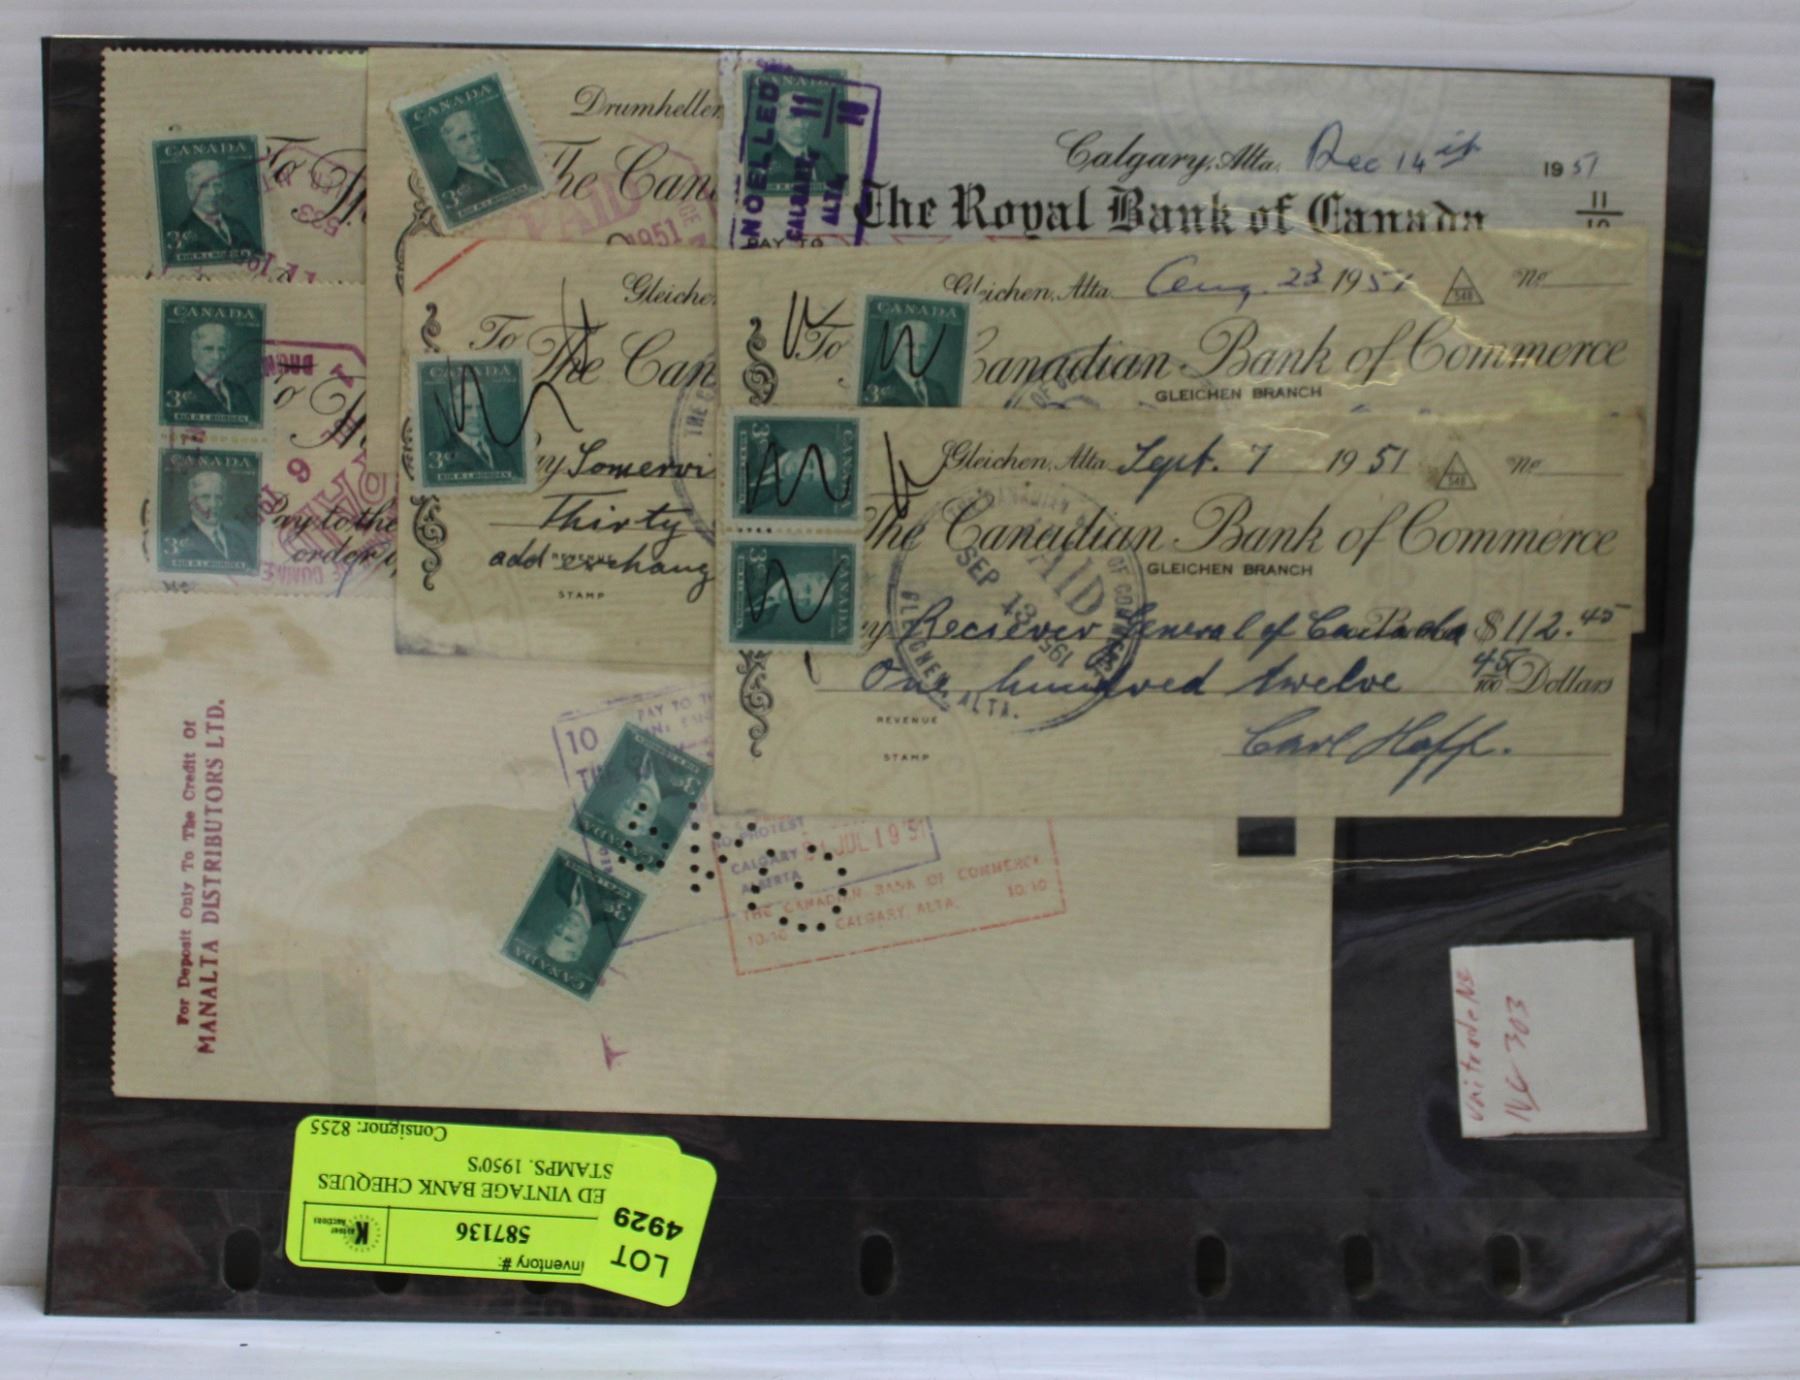 CANADA
3¢
To
573
CANADA
3¢
SIR R.L. BORDEN
CANADA
3¢
Pay to the
order
Drumheller
CANADA
3¢
The Can
PAID
1951
CANADA
CALGARY,
ALTA.
11
10
PAY TO
Calgary, Alta. Dec 14th 1951
The Royal Bank of Canada
11
Gleiche
To The Can
CANADA
3¢
SIR R.L. BORDEN
Pay Somervi
Thirty
add exchang
REVENUE
STAMP
Gleichen, Alta. Aug. 23 1951
548
No
To
CANADA
3¢
Canadian Bank of Commerce
GLEICHEN BRANCH
Gleichen, Alta. Sept. 7 1951
548
No
CANADA
3¢
CANADA
3¢
The Canadian Bank of Commerce
GLEICHEN BRANCH
PAID
SEP 13 195
GLEICHEN, ALTA.
Reciever General of Canada $112.45
One hundred twelve 45/100 Dollars
REVENUE
STAMP
Carl Hoff.
For Deposit Only To The Credit Of
MANALTA DISTRIBUTORS LTD.
10
PAY TO
CANADA
3¢
CANADA
3¢
NO PROTEST
CALGARY
ALBERTA
JUL 1951
THE CANADIAN BANK OF COMMERCE
10-10 CALGARY, ALTA. 10-10
NG 303
LOT
4929
Inventory #:
587136
ED VINTAGE BANK CHEQUES
STAMPS. 1950'S
Consignor: 8255